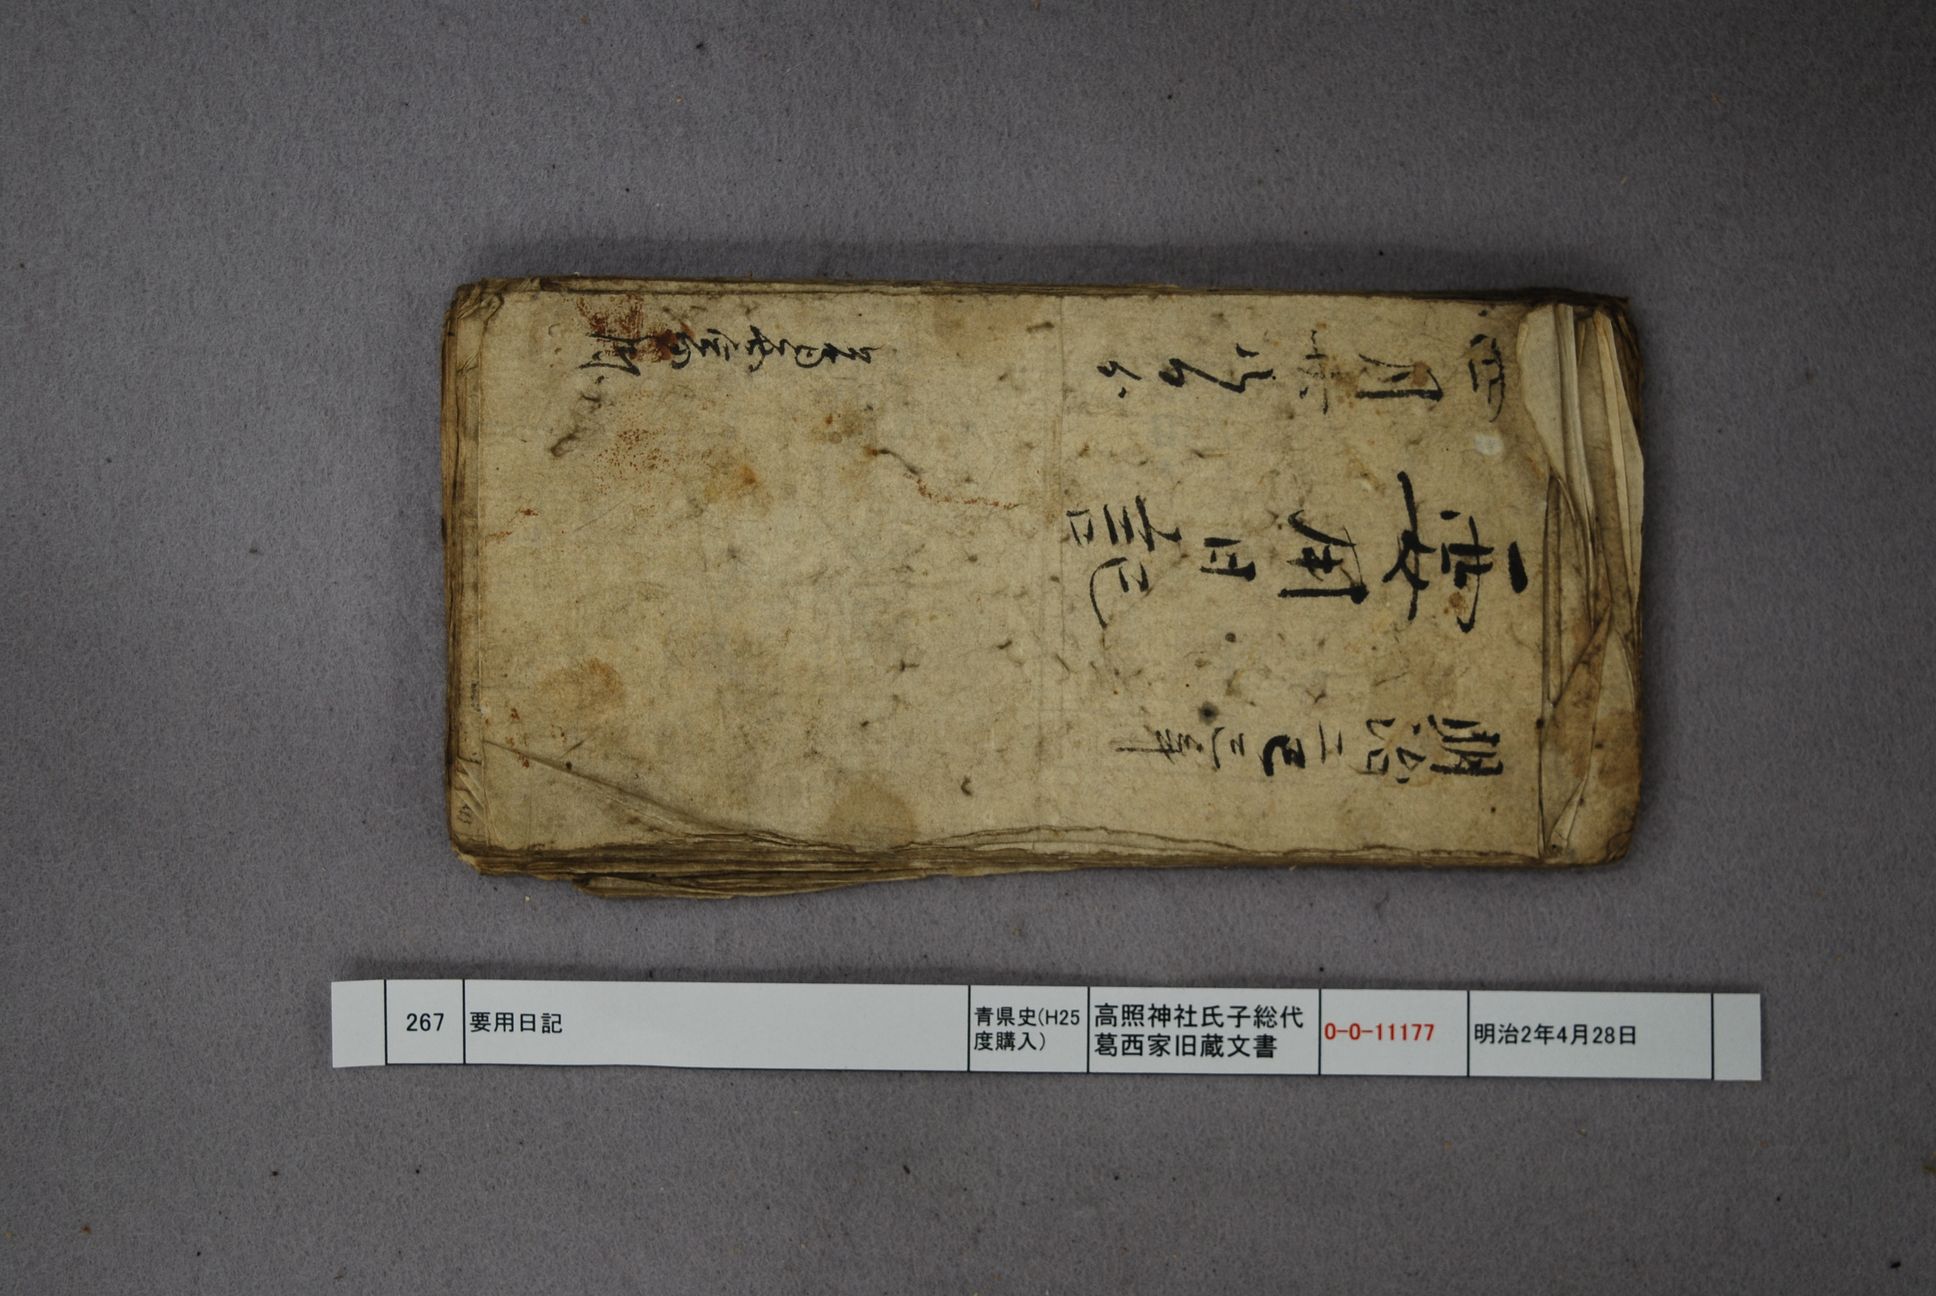 明治二巳之年
要用日記
四月廿八日ゟ
267
要用日記
青県史(H25
度購入)
高照神社氏子総代
葛西家旧蔵文書
0-0-11177
明治2年4月28日